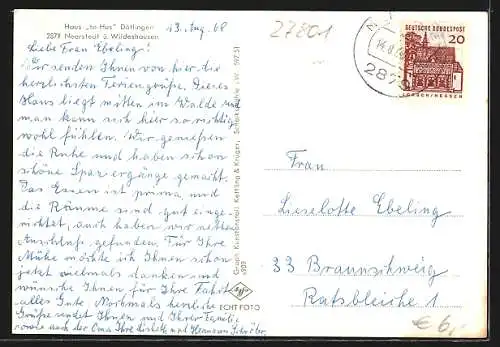 Haus „to Hus" Dötlingen
2879 Neerstedt ü. Wildeshausen
13. Aug. 68
27801
Liebe Frau Ebeling!
Wir senden Ihnen von hier die
herzlichsten Feriengrüße. Dieses
Haus liegt mitten im Walde und
man kann sich hier so richtig
wohl fühlen. Wir genießen
die Ruhe und haben schon
schöne Spaziergänge gemacht.
Das Essen ist prima und
die Räume sind gut einge-
richtet, auch haben wir netten
Anschluß gefunden. Für Ihre
Mühe möchte ich Ihnen schon
jetzt vielmals danken und
wünsche Ihnen für Ihre Fahrt
alles Gute. Nochmals herzliche
Grüße sendet Ihnen und Ihrer Familie
sowie auch der Oma Ihre und Hermann
Graph. Kunstanstalt Kettling & Krüger, Schalksmühle i. W.
ECHT FOTO
DEUTSCHE BUNDESPOST
20
LORSCH/HESSEN
2879
Frau
Lieselotte Ebeling
33 Braunschweig
Ratsbleiche 1
€ 6,-